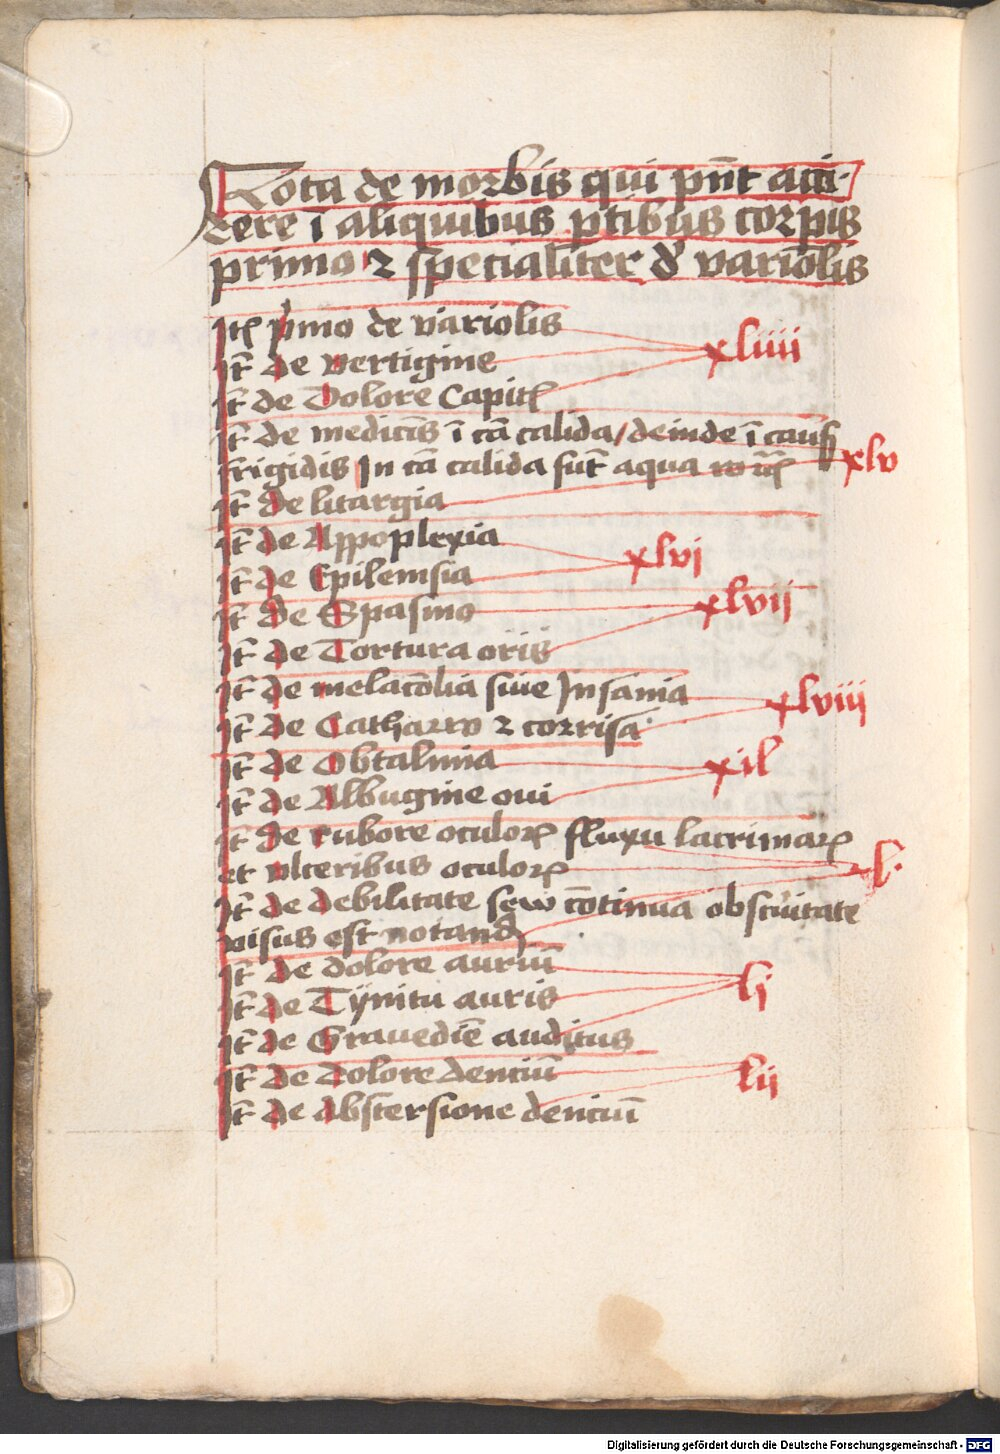 Nota de morbis qui pn̄t acci-
dere ī aliquibus ꝑtibus corpis
primo ⁊ specialiter d' variolis
Itē p'mo de variolis
It̄ de vertigine
It̄ de Dolore Capit̄
xliiii
It̄ de medicīs ī cā calida / deinde ī caus̄
frigidis In cā calida sūt aqua
xlv
It̄ de litargia
It̄ de Appoplexia
xlvi
It̄ de Epilemsia
It̄ de Spasmo
xlvii
It̄ de Tortura oris
It̄ de melācolia siue Insania
xlviii
It̄ de Catharro ⁊ corrisa
It̄ de Obtalmia
xil
It̄ de Albugine oui
It̄ de rubore oculoꝝ fluxu lacrimaꝝ
et vlceribus oculoꝝ
l.
It̄ de debilitate sew cōtinua obscuritate
visus est notand
It̄ de dolore auriū
It̄ de Tijnitu auris
lj
It̄ de Grauediē auditus
It̄ de Dolore denciū
lij
It̄ de abstersione denciū
Digitalisierung gefördert durch die Deutsche Forschungsgemeinschaft - DFG